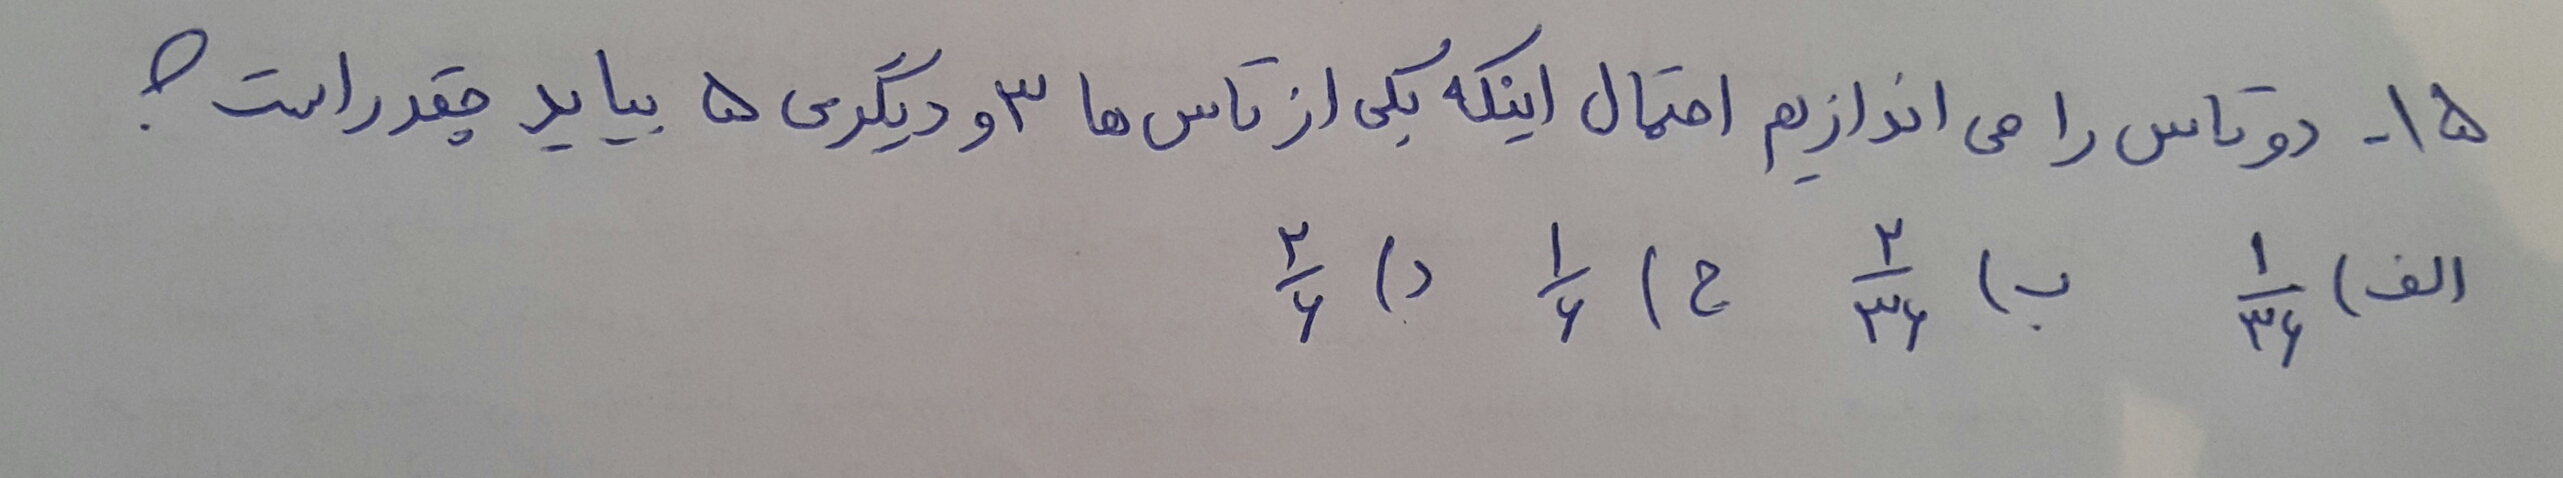 ۱۵- دو تاس را می اندازیم احتمال اینکه یکی از تاس ها ۳ و دیگری ۵ بیاید چقدر است ؟
الف) ۱/۳۶ ب) ۲/۳۶ ج) ۱/۶ د) ۲/۶